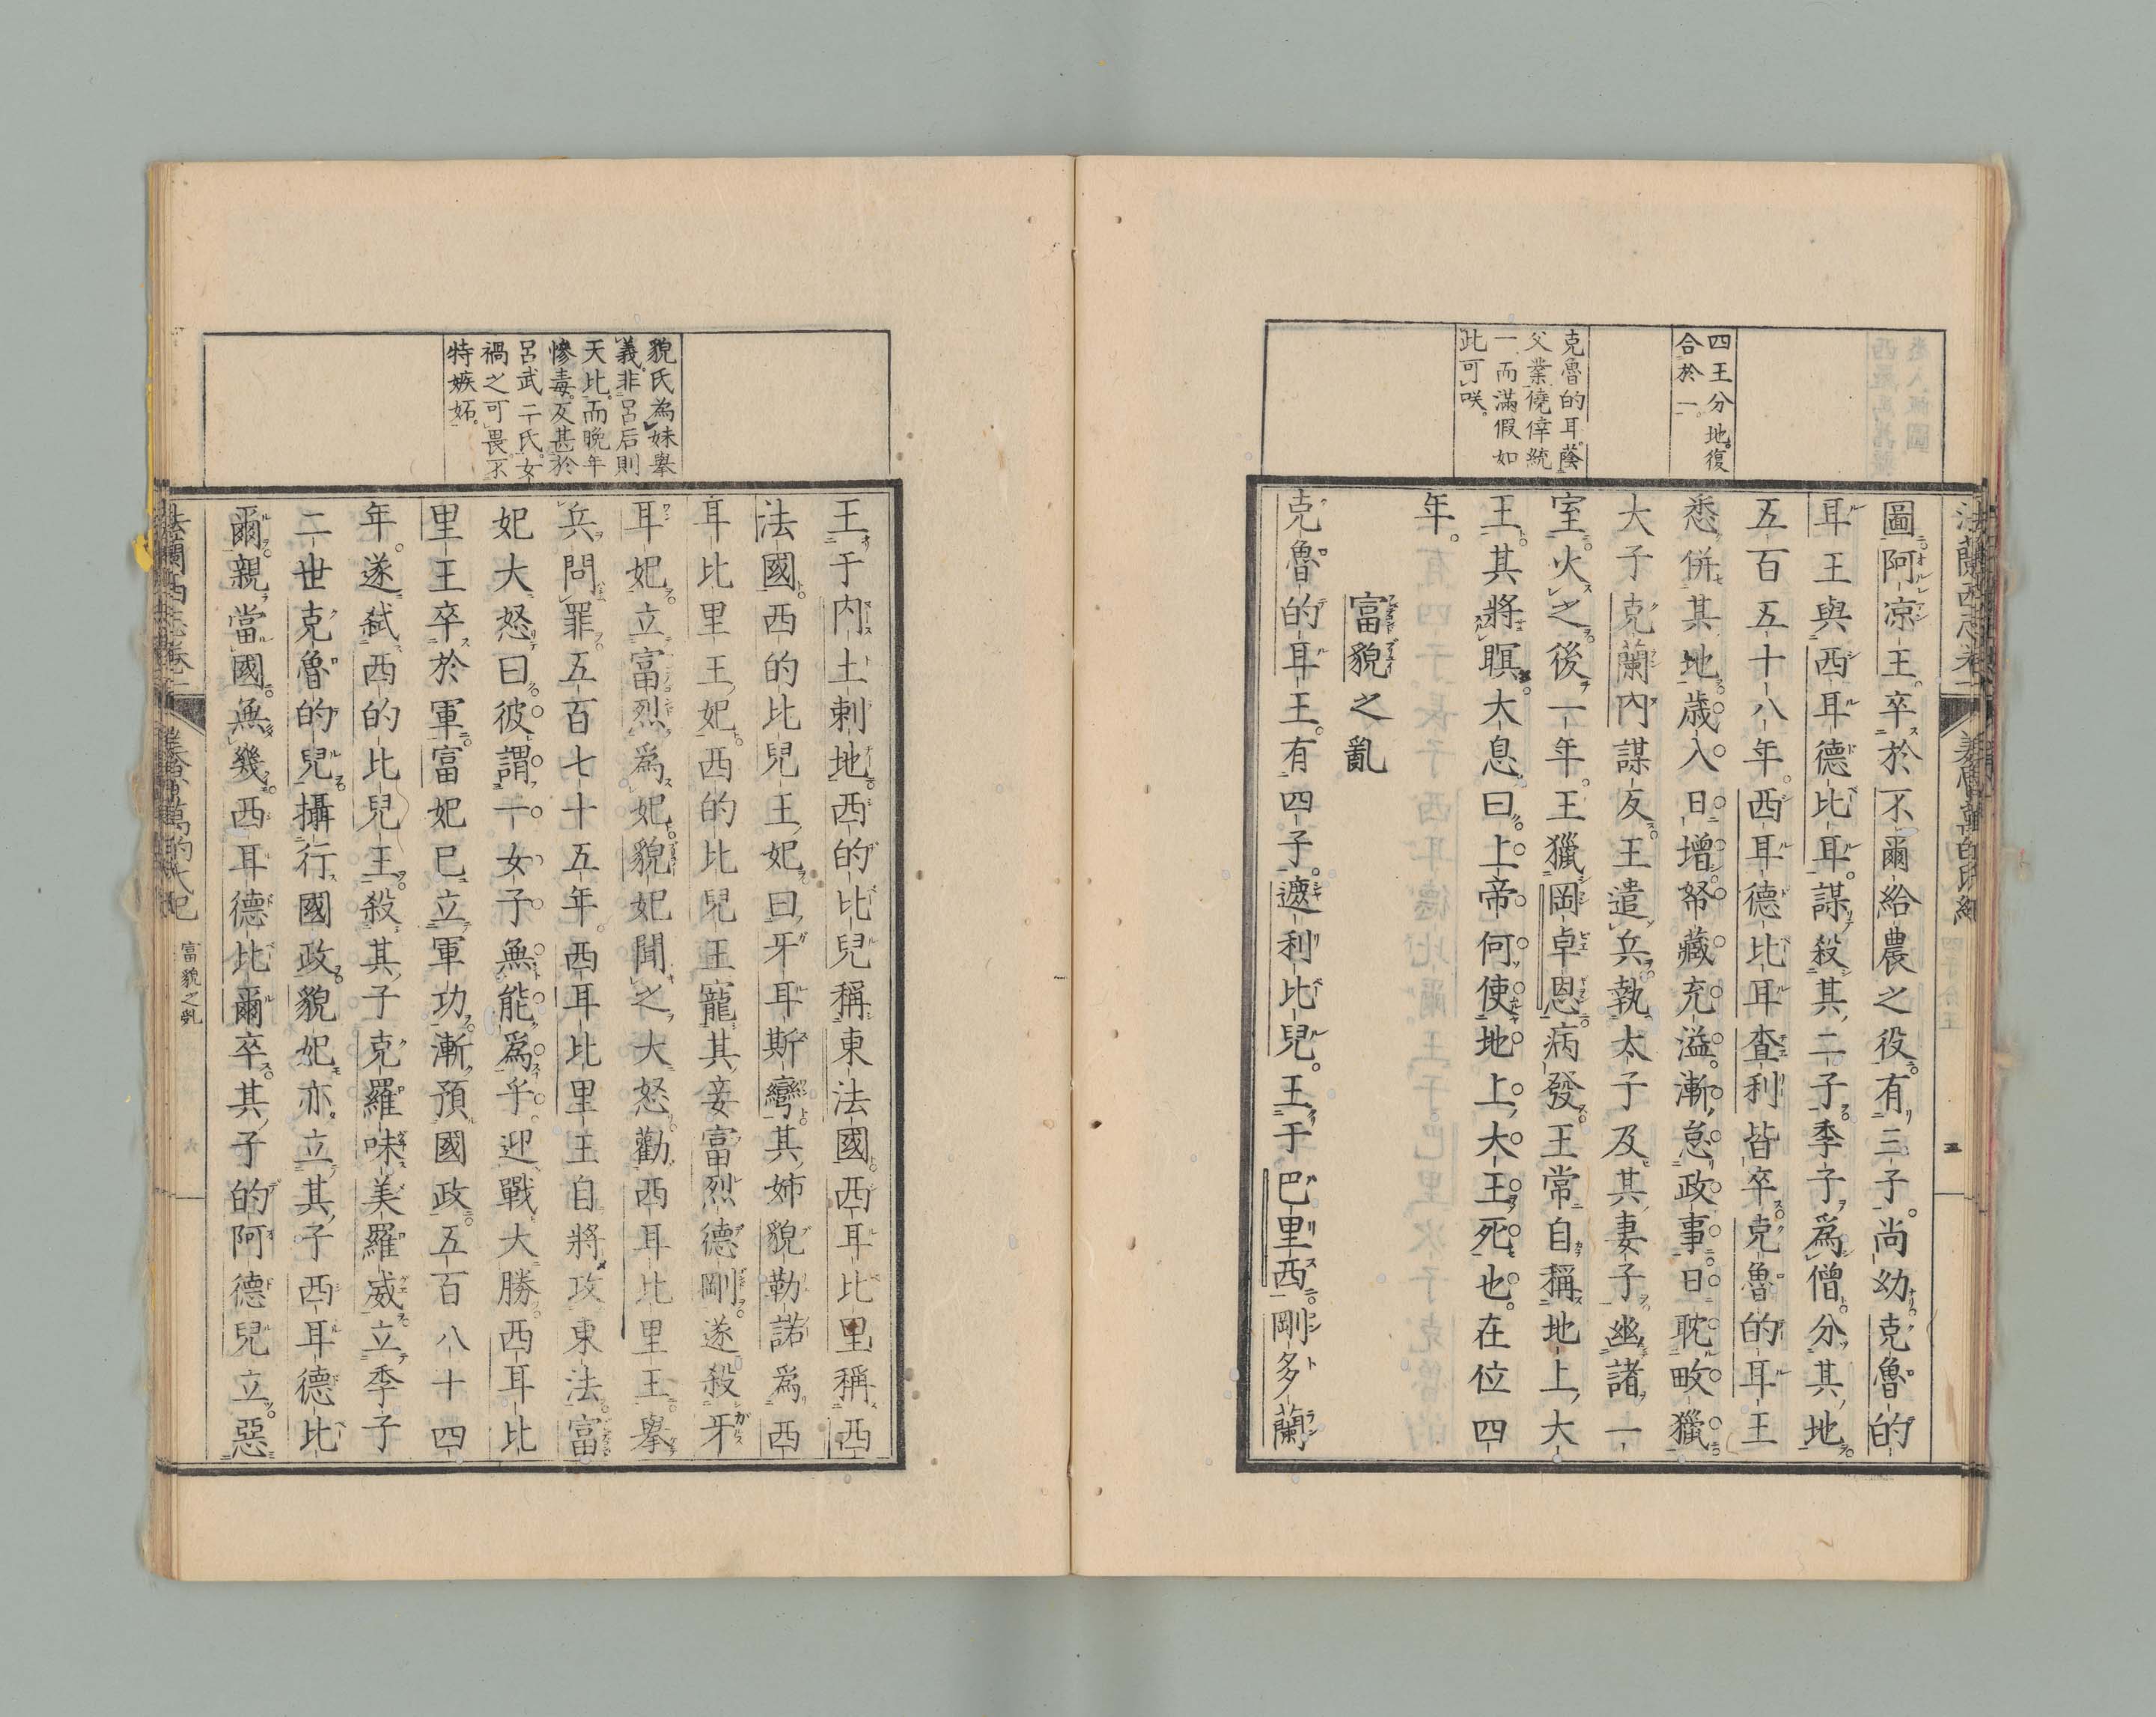 四王分地。復
合於一。
克魯的耳。蔭
父業僥倖統
一。而滿假如
此可咲。
圖阿凉王。卒於不爾給農之役。有三子。尚幼克魯的
耳王與西耳德比耳。謀殺其二子。季子爲僧分其地。
五百五十八年。西耳德比耳査利皆卒。克魯的耳王
悉併其地歳入日増帑藏充溢。漸怠政事日耽畋獵
大子克蘭内謀反。王遣兵執太子及其妻子幽諸一
室。火之後一年。王獵岡卓恩病發。王常自稱地上大
王。其將瞑。大息曰。上帝何使地上大王死也。在位四
年。
富貌之亂
克魯的耳王。有四子。遬利比兒。王于巴里西。剛多蘭
貌氏為妹舉
義。非呂后則
天比。而晩年
慘毒。反甚於
呂武二氏。女
禍之可畏不
特嫉妬。
王于内土剌地。西的比兒稱東法國。西耳比里稱西
法國。西的比兒王妃曰牙耳斯彎。其姉貌勒諾爲西
耳比里王妃。西的比兒王寵其妾富烈德剛。遂殺牙
耳妃立富烈爲妃。貌妃聞之大怒勸西耳比里王。舉
兵問罪。五百七十五年。西耳比里王自將攻東法。富
妃大怒曰彼謂一女子無能爲乎。迎戰大勝西耳比
里王卒於軍。富妃已立軍功漸預國政。五百八十四
年。遂弑西的比兒王。殺其子克羅味美羅威立季子
二世克魯的兒攝行國政。貌妃亦立其子西耳德比
爾。親當國。無幾西耳德比爾卒。其子的阿德兒立。惡
富貌之亂